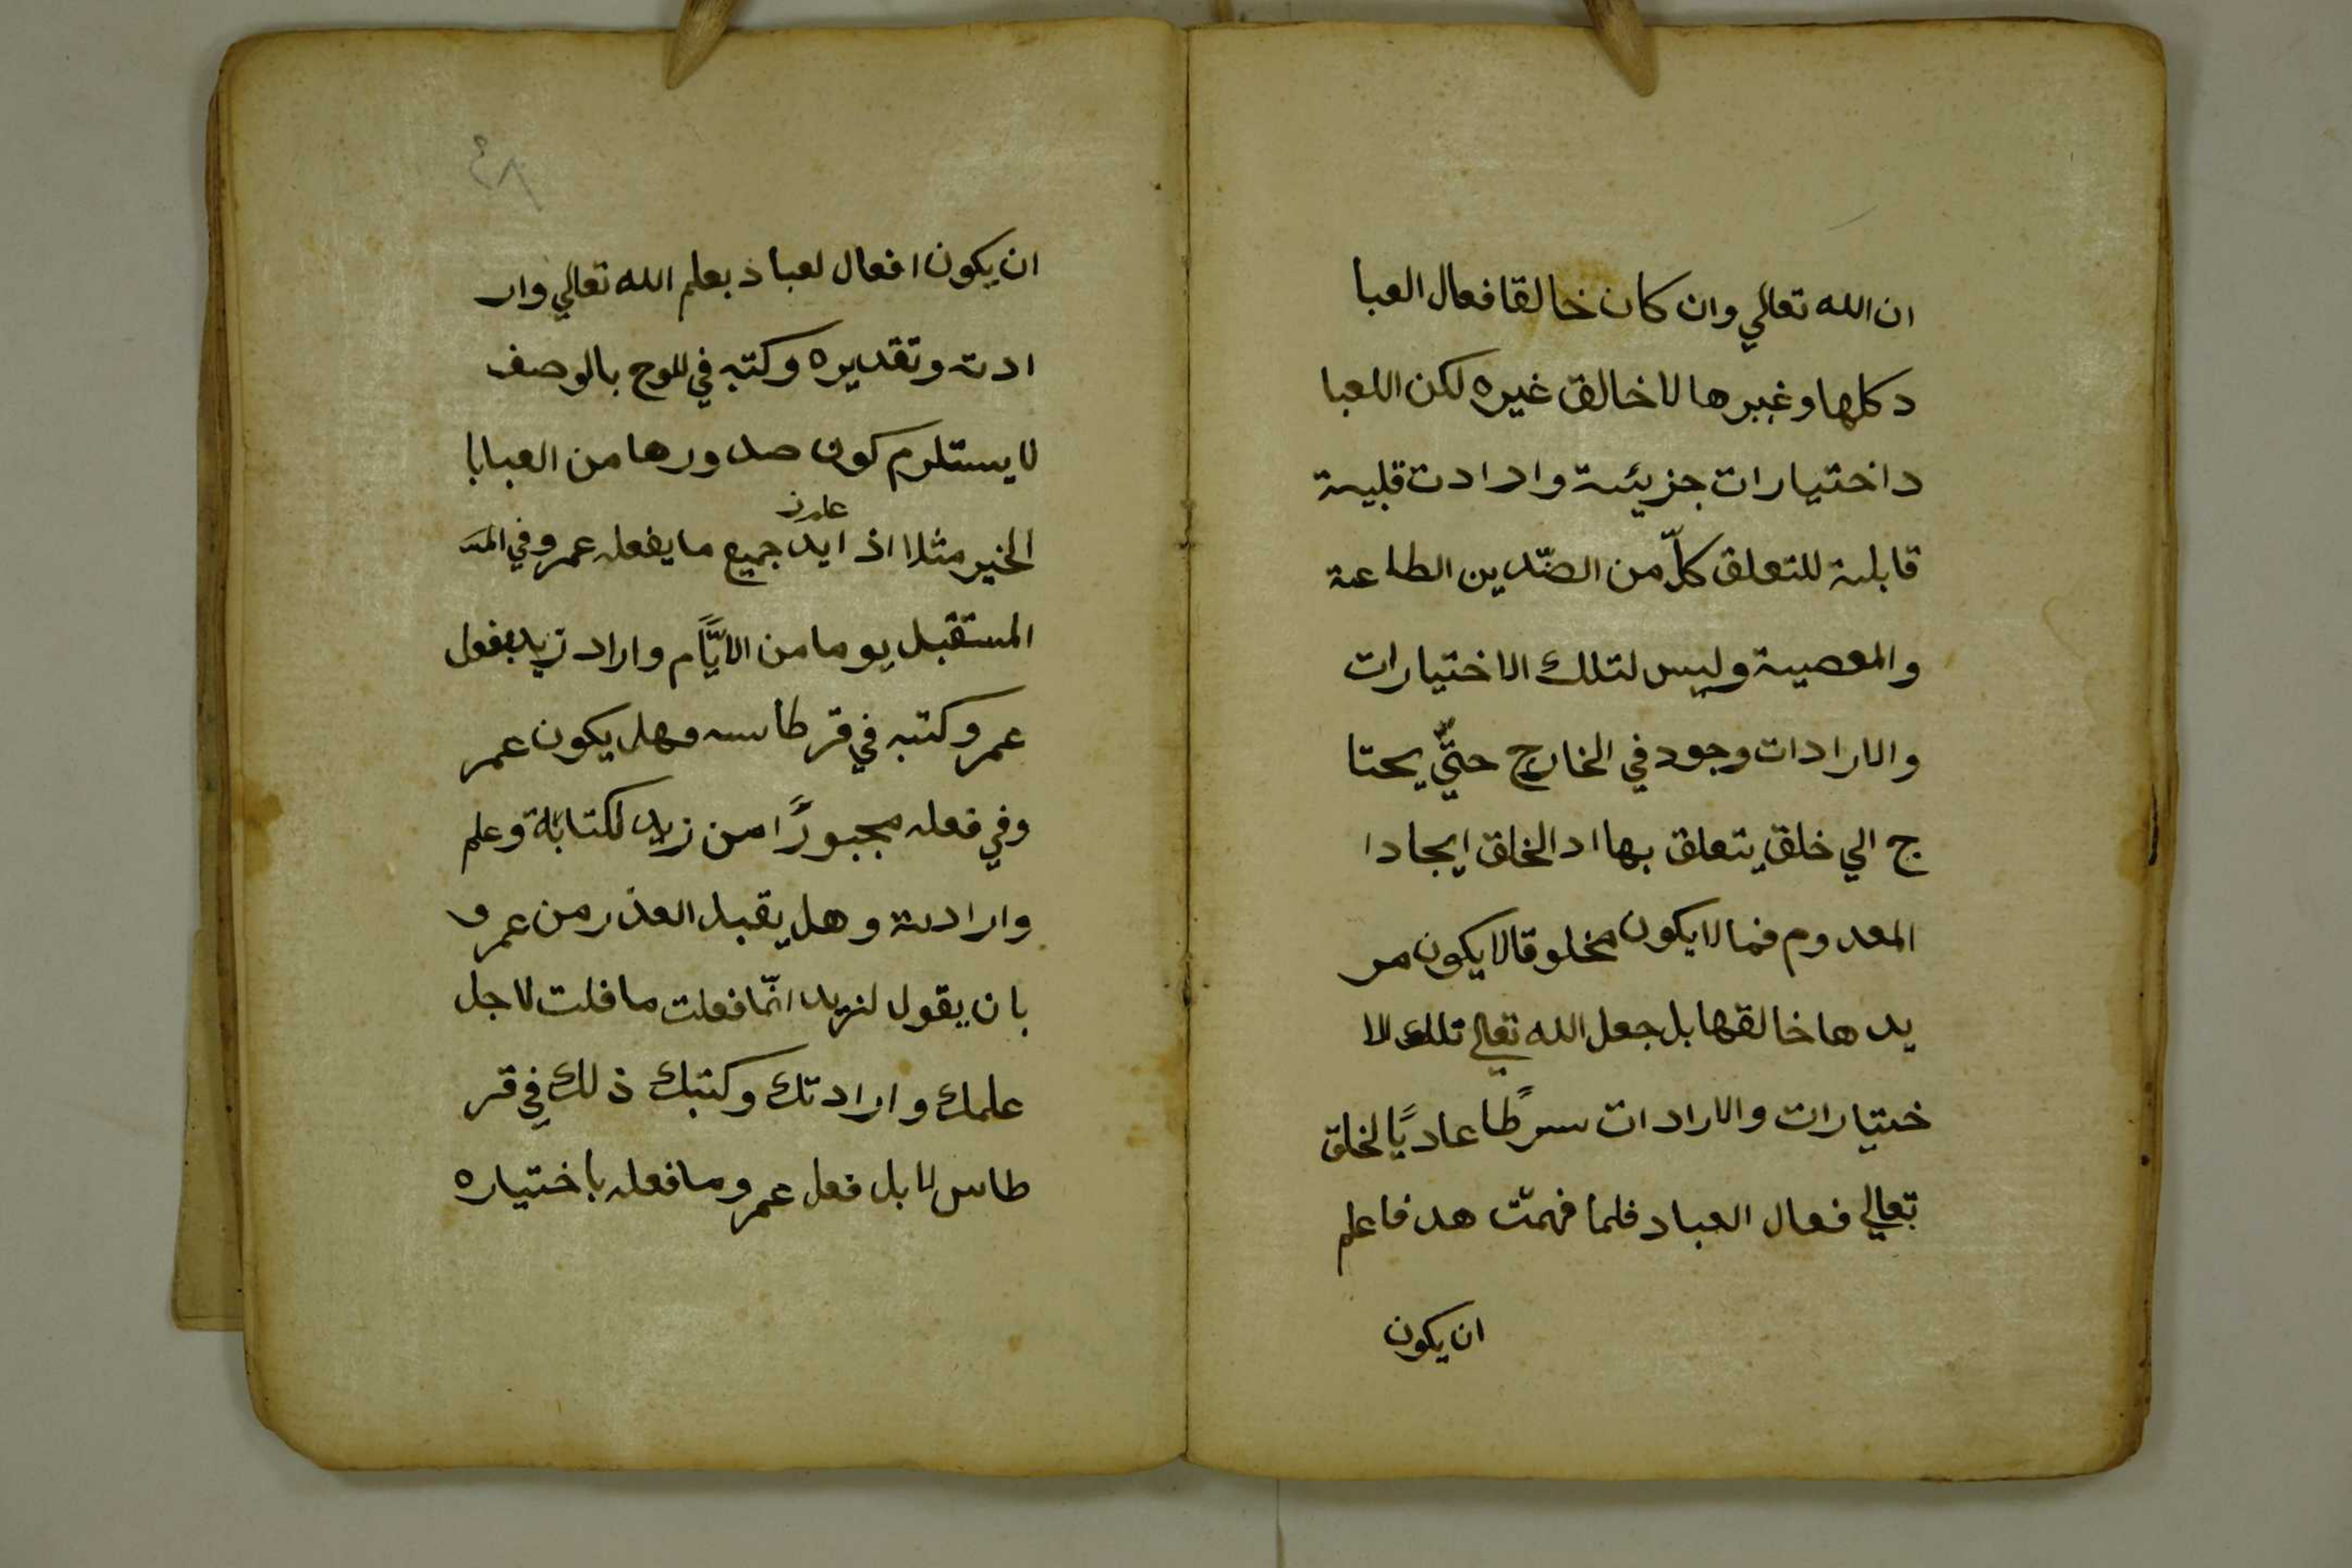 ان الله تعالي وان كان خالقا فعال العبا
د كلها وغيرها لا خالق غيره لكن اللعبا
د اختيارات جزيئة وارادت قلبية
قابلية للتعلق كلّ من الضّدين الطاعة
والمعصية وليس لتلك الاختيارات
والارادات وجود في الخارج حتيّ يحتا
ج الي خلق يتعلق بها اد الخلق ايجادا
المعدوم فما لا يكون مخلوقا لا يكون مر
يدها خالقها بل جعل الله تعالي تلك الا
ختيارات والارادات سرطًا عاديًا لخلق
تعالي فعال العباد فلما فهمت هد فاعلم
ان يكون
٤٨
ان يكون افعال لعباد بعلم الله تعالي وار
ادته وتقديره وكتبه في للوح بالوصف
لا يستلزم كون صدورها من العبابا
علمز
الخير مثلا اذ ايد جميع ما يفعله عمرو في المتـ
المستقبل يوما من الايّام واراد زيد بفعل
عمرو كتبه في قرطاسه وهل يكون عمر
وفي فعله مجبورًا من زيد لكتابة وعلم
وارادته وهل يقبل العذر من عمرو
بان يقول لنزيد انمّا فعلت ما فلت لاجل
علمك وارادتك وكتبك ذلك في قر
طاس لا بل فعل عمرو ما فعله باختياره